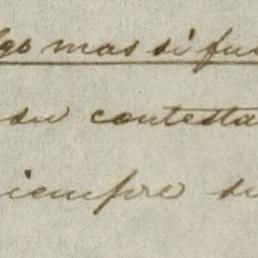 lgo mas si fue
su contesta
siempre su